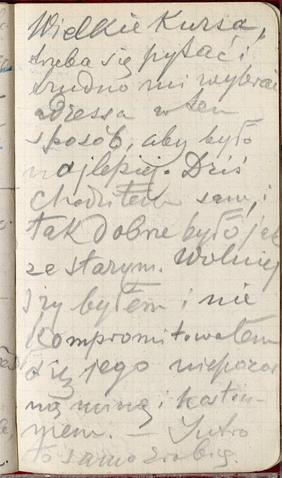 Wielkie Kursa,
trzeba się pytać i
trudno mi wybrać
adressa w ten
sposób, aby było
najlepiej. Dziś
chodziłem sam, i
tak dobrze było jak
ze starym. Wolniej
szy byłem i nie
kompromitowałem
się jego niepozor
ną miną i kostiu-
mem. — Jutro
to samo zrobię.